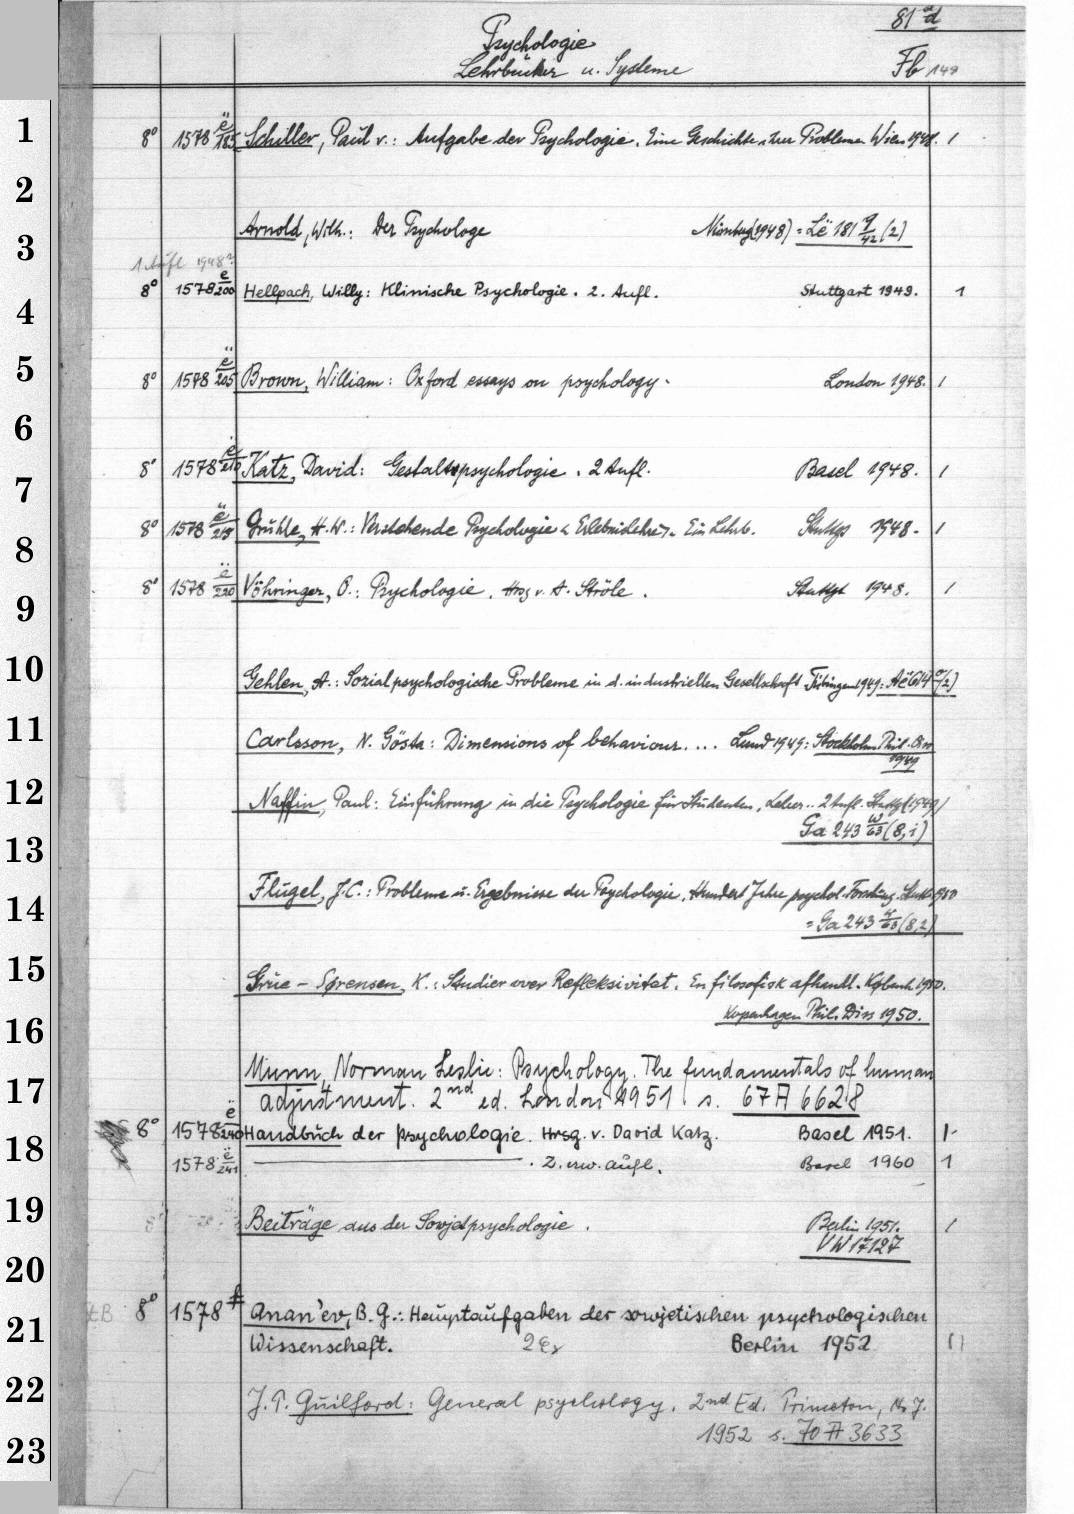 81 a d
Psychologie
Lehrbücher u. Systeme
Fb 149
1
8° 1578 ë/185 Schiller, Paul v.: Aufgabe der Psychologie. Eine Geschichte ihrer Probleme. Wien 1948. 1
2
Arnold, Wilh.: Der Psychologe Nürnberg (1948) = Lë 181 q/42 (2)
3
1. Aufl 1948?
8° 1578 e/200 Hellpach, Willy: Klinische Psychologie. 2. Aufl. Stuttgart 1949. 1
4
5
8° 1578 ë/205 Brown, William: Oxford essays on psychology. London 1948. 1
6
8° 1578 ë/210 Katz, David: Gestaltspsychologie. 2 Aufl. Basel 1948. 1
7
8° 1578 ë/215 Gruhle, H.W.: Verstehende Psychologie <Erlebnislehre>. Ein Lehrb. Stuttg 1948. 1
8
8° 1578 ë/220 Vöhringer, O.: Psychologie. Hrsg v. A. Ströle. Stuttgt 1948. 1
9
10
Gehlen, A.: Sozialpsychologische Probleme in d. industriellen Gesellschaft Tübingen 1949:
11
Carlsson, N. Gösta: Dimensions of behaviour. ... Lund 1949: Stockholm Phil. Diss
1949
12
Naffin, Paul: Einführung in die Psychologie für Studenten, Lehrer.. 2 Aufl. Stuttg (1949)
Ga 243 w/63 (8,i)
13
Flügel, J.C.: Probleme u. Ergebnisse der Psychologie. Hundert Jahre psychol. Forschung. Stutt 1950
14
= Ga 243 w/63 (8,2)
15
Grue-Sørensen, K.: Studier over Refleksivitet. En filosofisk afhandl. Københ. 1950.
Kopenhagen Phil. Diss 1950.
16
Munn, Norman Leslie: Psychology. The fundamentals of human
17
adjustment. 2nd ed. London 1951 s. 67 A 6628
8° 1578 ë/240 Handbuch der psychologie. Hrsg. v. David Katz. Basel 1951. 1
18
1578 ë/241 ———. 2. erw. aufl. Basel 1960 1
19
8° Beiträge aus der Sowjetpsychologie. Berlin 1951. 1
VW 17127
20
tB 8° 1578 f Anan'ev, B.G.: Hauptaufgaben der sowjetischen psychologischen
21
Wissenschaft. 2 Ex Berlin 1952
22
J.P. Guilford: General psychology. 2nd Ed. Princeton, N.J.
1952 s. 70 A 3633
23